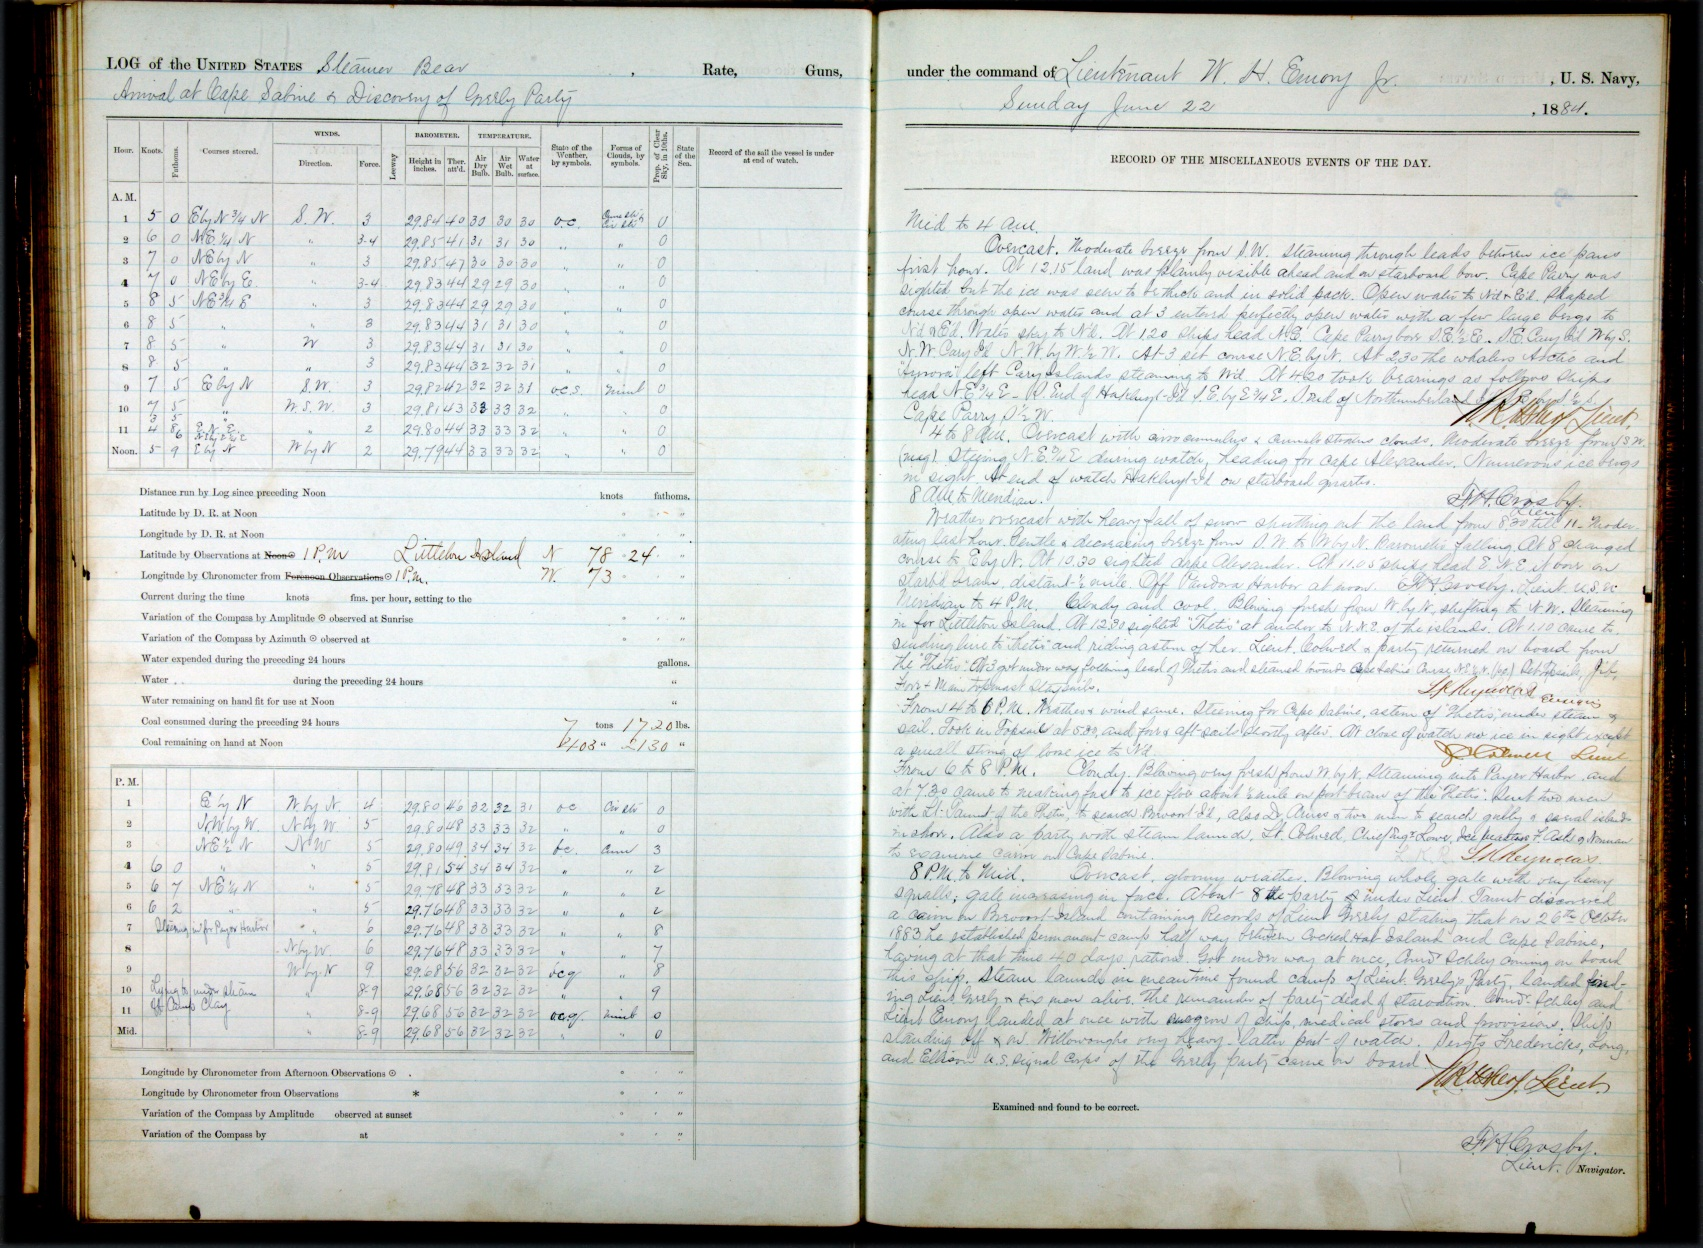 LOG of the UNITED STATES Steamer Bear , Rate, Guns,
Arrival at Cape Sabine & Discovery of Greely Party
Hour. Knots. Fathoms. Courses steered. WINDS. Direction. Force. Leeway BAROMETER. Height in inches. Ther. att'd. TEMPERATURE. Air Dry Bulb. Air Wet Bulb. Water at surface. State of the Weather, by symbols. Forms of Clouds, by symbols. Prop. of Clear Sky, in 10ths. State of the Sea. Record of the sail the vessel is under at end of watch.
A. M.
1 5 0 E by N 3/4 N S. W. 3 29.84 40 30 30 30 o.c. 0
2 6 0 N.E. 1/4 N " 3-4 29.85 41 31 31 30 " " 0
3 7 0 N E by N " 3 29.85 47 30 30 30 " " 0
4 7 0 N E by E. " 3-4 29.83 44 29 29 30 " " 0
5 8 5 N E 3/4 E " 3 29.83 44 29 29 30 " " 0
6 8 5 " " 3 29.83 44 31 31 30 " " 0
7 8 5 " W 3 29.83 44 31 31 30 " " 0
8 8 5 " " 3 29.83 44 32 32 31 " " 0
9 7 5 E by N S.W. 3 29.82 42 32 32 31 o.c.s. Nimb 0
10 7 5 " W.S.W. 3 29.81 43 33 33 32 " " 0
3 5
11 4 6 E.N.E. " 2 29.80 44 33 33 32 " " 0
Noon. 5 9 E by N W by N 2 29.79 44 33 33 32 " " 0
Distance run by Log since preceding Noon knots fathoms.
Latitude by D. R. at Noon ° ' "
Longitude by D. R. at Noon ° ' "
Latitude by Observations at Noon ⊙ 1 P.M Littleton Island N 78 ° 24 ' "
Longitude by Chronometer from Forenoon Observations ⊙ 1 P.M. W. 73 ° ' "
Current during the time knots fms. per hour, setting to the
Variation of the Compass by Amplitude ⊙ observed at Sunrise ° ' "
Variation of the Compass by Azimuth ⊙ observed at ° ' "
Water expended during the preceding 24 hours gallons.
Water . . during the preceding 24 hours "
Water remaining on hand fit for use at Noon "
Coal consumed during the preceding 24 hours 7 tons 1720 lbs.
Coal remaining on hand at Noon 403 " 2130 "
P. M.
1 E by N W by N. 4 29.80 46 32 32 31 o c Cir str 0
2 N.W by W. N by W. 5 29.80 48 33 33 32 " " 0
3 N.E 1/2 N N W 5 29.80 49 34 34 32 b.c. Cum 3
4 6 0 " " 5 29.81 54 34 34 32 " " 2
5 6 7 N E 1/4 N " 5 29.78 48 33 33 32 " " 2
6 6 2 " " 5 29.76 48 33 33 32 " " 2
7 Steering in for Payer Harbor " 6 29.76 48 33 33 32 " " 8
8 N by W. 6 29.76 48 33 33 32 " " 7
9 W by N 9 29.68 56 32 32 32 b.c.q. " 8
10 Lying to under steam " 8-9 29.68 56 32 32 32 " " 9
11 off Camp Clay " 8-9 29.68 56 32 32 32 o.c.q. Nimb 0
Mid. " 8-9 29.68 56 32 32 32 " " 0
Longitude by Chronometer from Afternoon Observations ⊙ . ° ' "
Longitude by Chronometer from Observations * ° ' "
Variation of the Compass by Amplitude observed at sunset ° ' "
Variation of the Compass by at ° ' "
under the command of Lieutenant W. H. Emory Jr. , U. S. Navy,
Sunday June 22 , 1884.
RECORD OF THE MISCELLANEOUS EVENTS OF THE DAY.
Mid to 4 am.
Overcast. Moderate breeze from S.W. Steaming through leads between ice pans
first hour. At 12.15 land was plainly visible ahead and on starboard bow. Cape Parry was
sighted but the ice was seen to be thick and in solid pack. Open water to N'd & E'd. Shaped
course through open water and at 3 entered perfectly open water with a few large bergs to
N'd & E'd. Water sky to N'd. At 1.20 Ships head N.E. Cape Parry bore S.E. 1/2 E. S.E. Cary Id W by S.
N.W. Cary Id N.W. by W. 1/2 W. At 3 set course N.E. by N. At 2.30 the whalers Arctic and
left Cary Islands steaming to W'd. At 4.00 took bearings as follows Ships
head N.E. 3/4 E. S. End of Hakluyt Id S.E. by E 3/4 E. S end of Northumberland
Cape Parry S 1/2 W. Lieut.
4 to 8 am. Overcast with cirro cumulus & cumulo stratus clouds. Moderate breeze from S.W.
(mag). Steering N.E. 3/4 E during watch, heading for Cape Alexander. Numerous ice bergs
in sight. At end of watch Hakluyt Id on starboard quarter.
F H Crosby.
Lieut
8 AM to Meridian.
Weather overcast with heavy fall of snow shutting out the land from 8.30 till 11. Moder-
ating last hour. Gentle & decreasing breeze from S.W. to W by N. Barometer falling. At 8 changed
course to E by N. At 10.30 sighted Cape Alexander. At 11.05 ships head E.N.E. it bore on
starb'd beam, distant 1/2 mile. Off Pandora Harbor at noon. F H Crosby. Lieut. U.S.N.
Meridian to 4 P.M. Cloudy and cool. Blowing fresh from W. by N. shifting to N.W. Steaming
in for Littleton Island. At 12.30 sighted "Thetis" at anchor to N.N.E. of the islands. At 1.10 came to
sending line to Thetis and riding astern of her. Lieut. Colwell & party returned on board from
the "Thetis". At 3 got under way following lead of Thetis and steamed towards Cape Sabine Course N.E. 1/2 N. Set Foresail, Jib,
Fore & Main topmast Staysails. L K Reynolds Ensign
From 4 to 6 P.M. Weather & wind same. Steering for Cape Sabine, astern of "Thetis", under steam &
sail. Took in Topsail at 5.30, and fore & aft sails shortly after. At close of watch no ice in sight except
a small string of loose ice to N'd. J C Colwell Lieut
From 6 to 8 P.M. Cloudy. Blowing very fresh from W. by N. Steaming into Payer Harbor and
at 7.30 came to making fast to ice floe about 1/4 mile on port beam of the "Thetis". Sent two men
with Lt. Taunt of the Thetis, to search Brevoort Id, also Dr. Ames & two men to search gully & small islands
in shore. Also a party with steam launch, Lt. Colwell, Chief Eng'r Lowe, Ice Masters F. Ash & Norman
to examine cairn on Cape Sabine. L K Reynolds
8 P.M. to Mid. Overcast, gloomy weather. Blowing whole gale with very heavy
squalls, gale increasing in force. About 8 the party under Lieut. Taunt discovered
a cairn on Brevoort Island containing Records of Lieut Greely stating that on 26th October
1883 he established permanent camp half way between Cocked Hat Island and Cape Sabine,
having at that time 40 days rations. Got under way at once, Comd'r Schley coming on board
this ship. Steam launch in meantime found camp of Lieut. Greely's Party, landed find-
ing Lieut. Greely & six men alive. The remainder of party dead of starvation. Comd'r Schley and
Lieut Emory landed at once with surgeon of ship, medical stores and provisions. Ship
standing off & on. Willowoughs very heavy latter part of watch. Sergts Fredericks, Long,
and Ellison U.S. Signal Corps of the Greely party came on board.
Lieut.
Examined and found to be correct.
F H Crosby.
Lieut. Navigator.